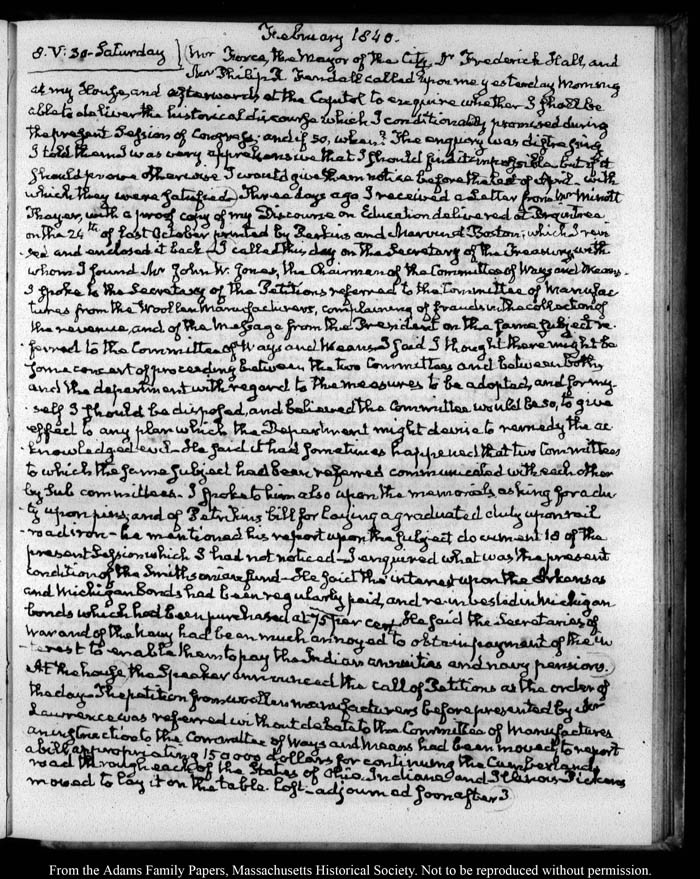 February 1840.
8. V: 30- Saturday
Mr Force, the Mayor of the City, Dr Frederick Hall, and
Mr Philip R Fendall called upon me yesterday Morning
at my House, and afterwards at the Capitol to enquire whether I shall be
able to deliver the historical discourse which I conditionally promised during
the present Session of Congress; and if so, when? The enquiry was distressing
I told them I was very apprehensive that I should find it impossible but if it
should prove otherwise I would give them notice before the last of April - with
which they were satisfied. Three days ago I received a Letter from Mr Minott
Thayer, with a proof copy of my Discourse on Education delivered at Braintree
on the 24th of last October printed by Perkins and Marvin at Boston; which I revi
sed and enclosed it back - I called this day on the Secretary of the Treasury, with
whom I found Mr John W. Jones, the Chairman of the Committee of Ways and Means.
I spoke to the Secretary of the Petitions referred to the Committee of Manufac
tures from the Woollen Manufacturers, complaining of frauds in the collection of
the revenue, and of the Message from the President on the same subject re-
ferred to the Committee of Ways and Means. I said I thought there might be
some concert of proceeding between the two Committees and between both,
and the department with regard to the measures to be adopted, and for my-
self I should be disposed, and believed the Committee would be so, to give
effect to any plan which the Department might devise to remedy the ac
knowledged evil - He said it had sometimes happened that two Committees
to which the same subject had been referred communicated with each other
by sub committees - I spoke to him also upon the memorials asking for a du
ty upon pins, and of Petrikins bill for laying a graduated duty upon rail
road iron - he mentioned his report upon the subject document 18 of the
present Session which I had not noticed - I enquired what was the present
condition of the Smithsonian fund - He said the interest upon the Arkansas
and Michigan Bonds had been regularly paid, and re-invested in Michigan
bonds which had been purchased at 75 per cent. He said the Secretaries of
War and of the Navy had been much annoyed to obtain payment of the in
terest to enable them to pay the Indian annuities and navy pensions.
At the house the Speaker announced the call of Petitions as the order of
the day - The petition from woollen manufacturers before presented by Mr
Lawrence was referred without debate to the Committee of Manufactures
an instruction to the Committee of Ways and Means had been moved to report
a bill appropriating 150000 dollars for continuing the Cumberland
road through each of the States of Ohio Indiana and Illinois Pickens
moved to lay it on the table. lost - adjourned soon after 3
From the Adams Family Papers, Massachusetts Historical Society. Not to be reproduced without permission.